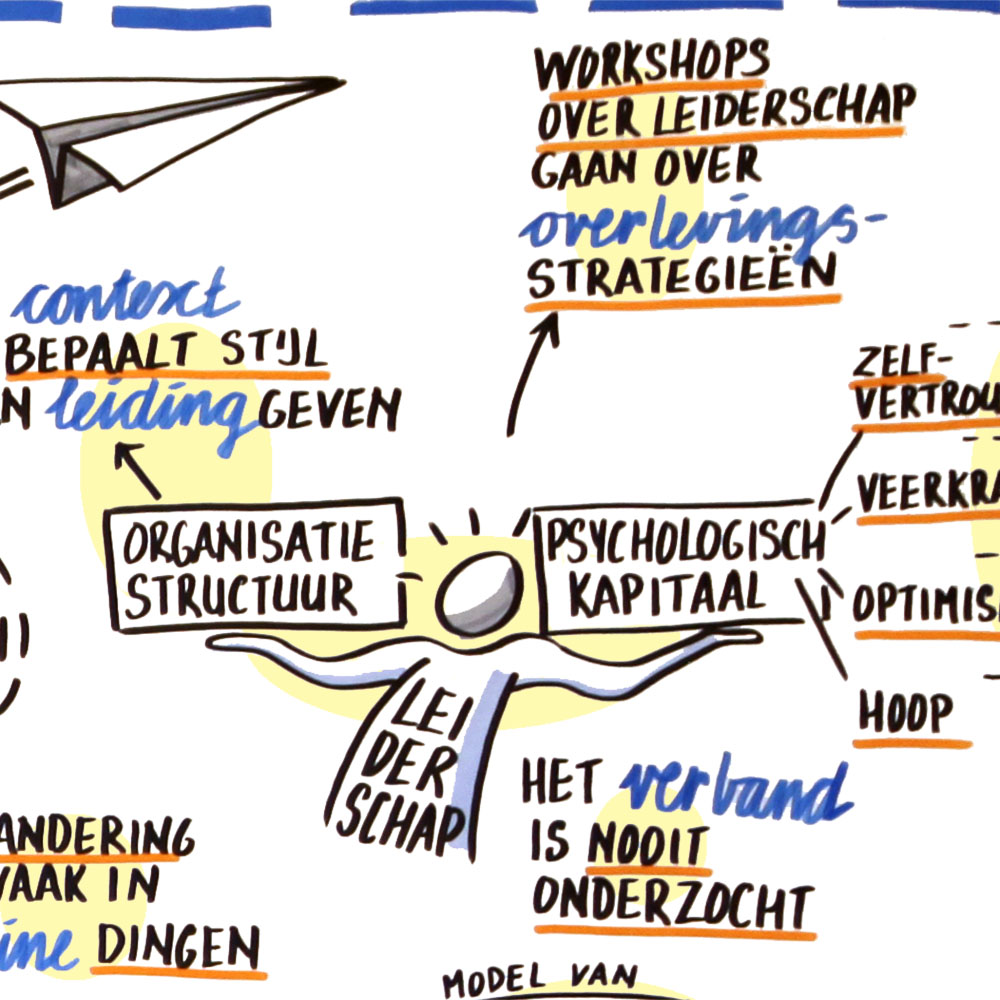 WORKSHOPS
OVER LEIDERSCHAP
GAAN OVER
overlevings-
STRATEGIEËN
context
BEPAALT STIJL
N leiding GEVEN
ORGANISATIE
STRUCTUUR
PSYCHOLOGISCH
KAPITAAL
ZELF-
VERTROU
VEERKRA
OPTIMIS
HOOP
LEI
DER
SCHAP
HET verband
IS NOOIT
ONDERZOCHT
ANDERING
VAAK IN
ine DINGEN
MODEL VAN